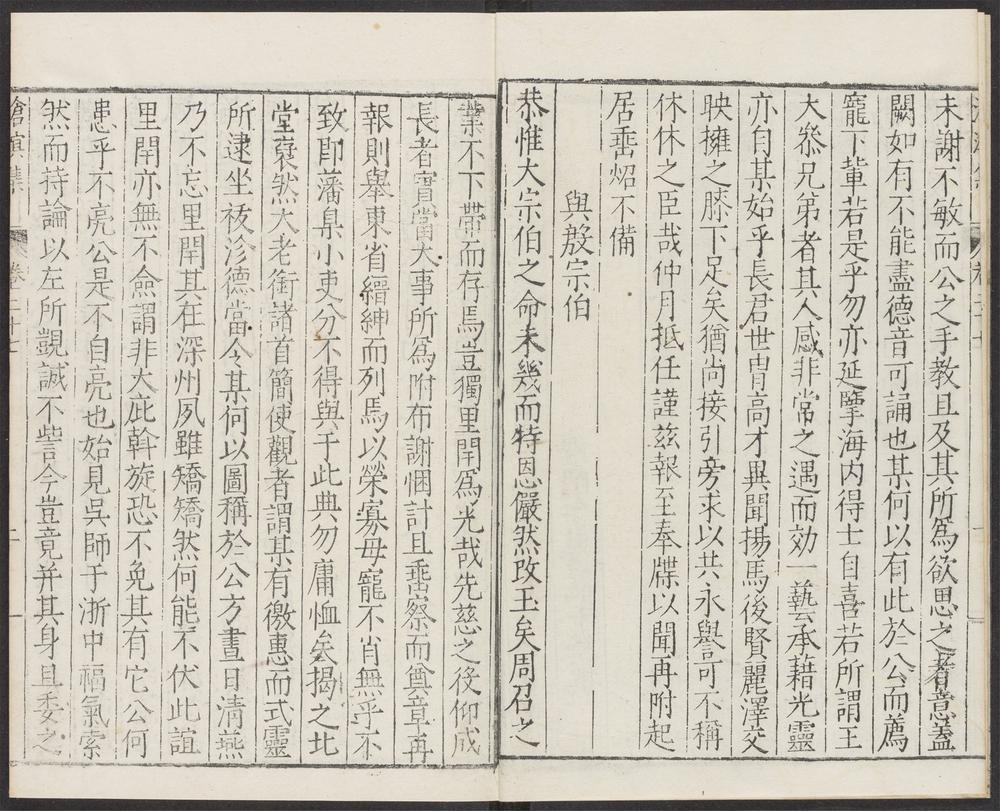 未謝不敏而公之手教且及其所爲欲思之者意蓋
闕如有不能盡德音可誦也某何以有此於公而薦
寵下輩若是乎勿亦延擥海内得士自喜若所謂王
大叅兄弟者其人感非常之遇而効一藝承藉光靈
亦自某始乎長君世冑高才異聞揚馬後賢麗澤交
映擁之膝下足矣猶尚接引旁求以共永譽可不稱
休休之臣哉仲月抵任謹茲報至奉牒以聞再附起
居垂炤不備
與殷宗伯
恭惟大宗伯之命未幾而特恩儼然改玉矣周召之
業不下帶而存焉豈獨里閈爲光哉先慈之後仰成
長者實當大事所爲附布謝悃計且垂察而酋章再
報則舉東省縉紳而列焉以榮寡母寵不肖無乎不
致即藩臬小吏分不得與于此典勿庸恤矣揭之北
堂裒然大老銜諸首簡使觀者謂某有徼惠而式靈
所逮坐祓沴德當今某何以圖稱於公方晝日清燕
乃不忘里閈其在深州夙雖矯矯然何能不伏此誼
里閈亦無不僉謂非大庇斡旋恐不免其有它公何
患乎不亮公是不自亮也始見吳師于浙中福氣索
然而持論以左所覬誠不訾今豈竟并其身且委之
滄溟集
卷二十七
二